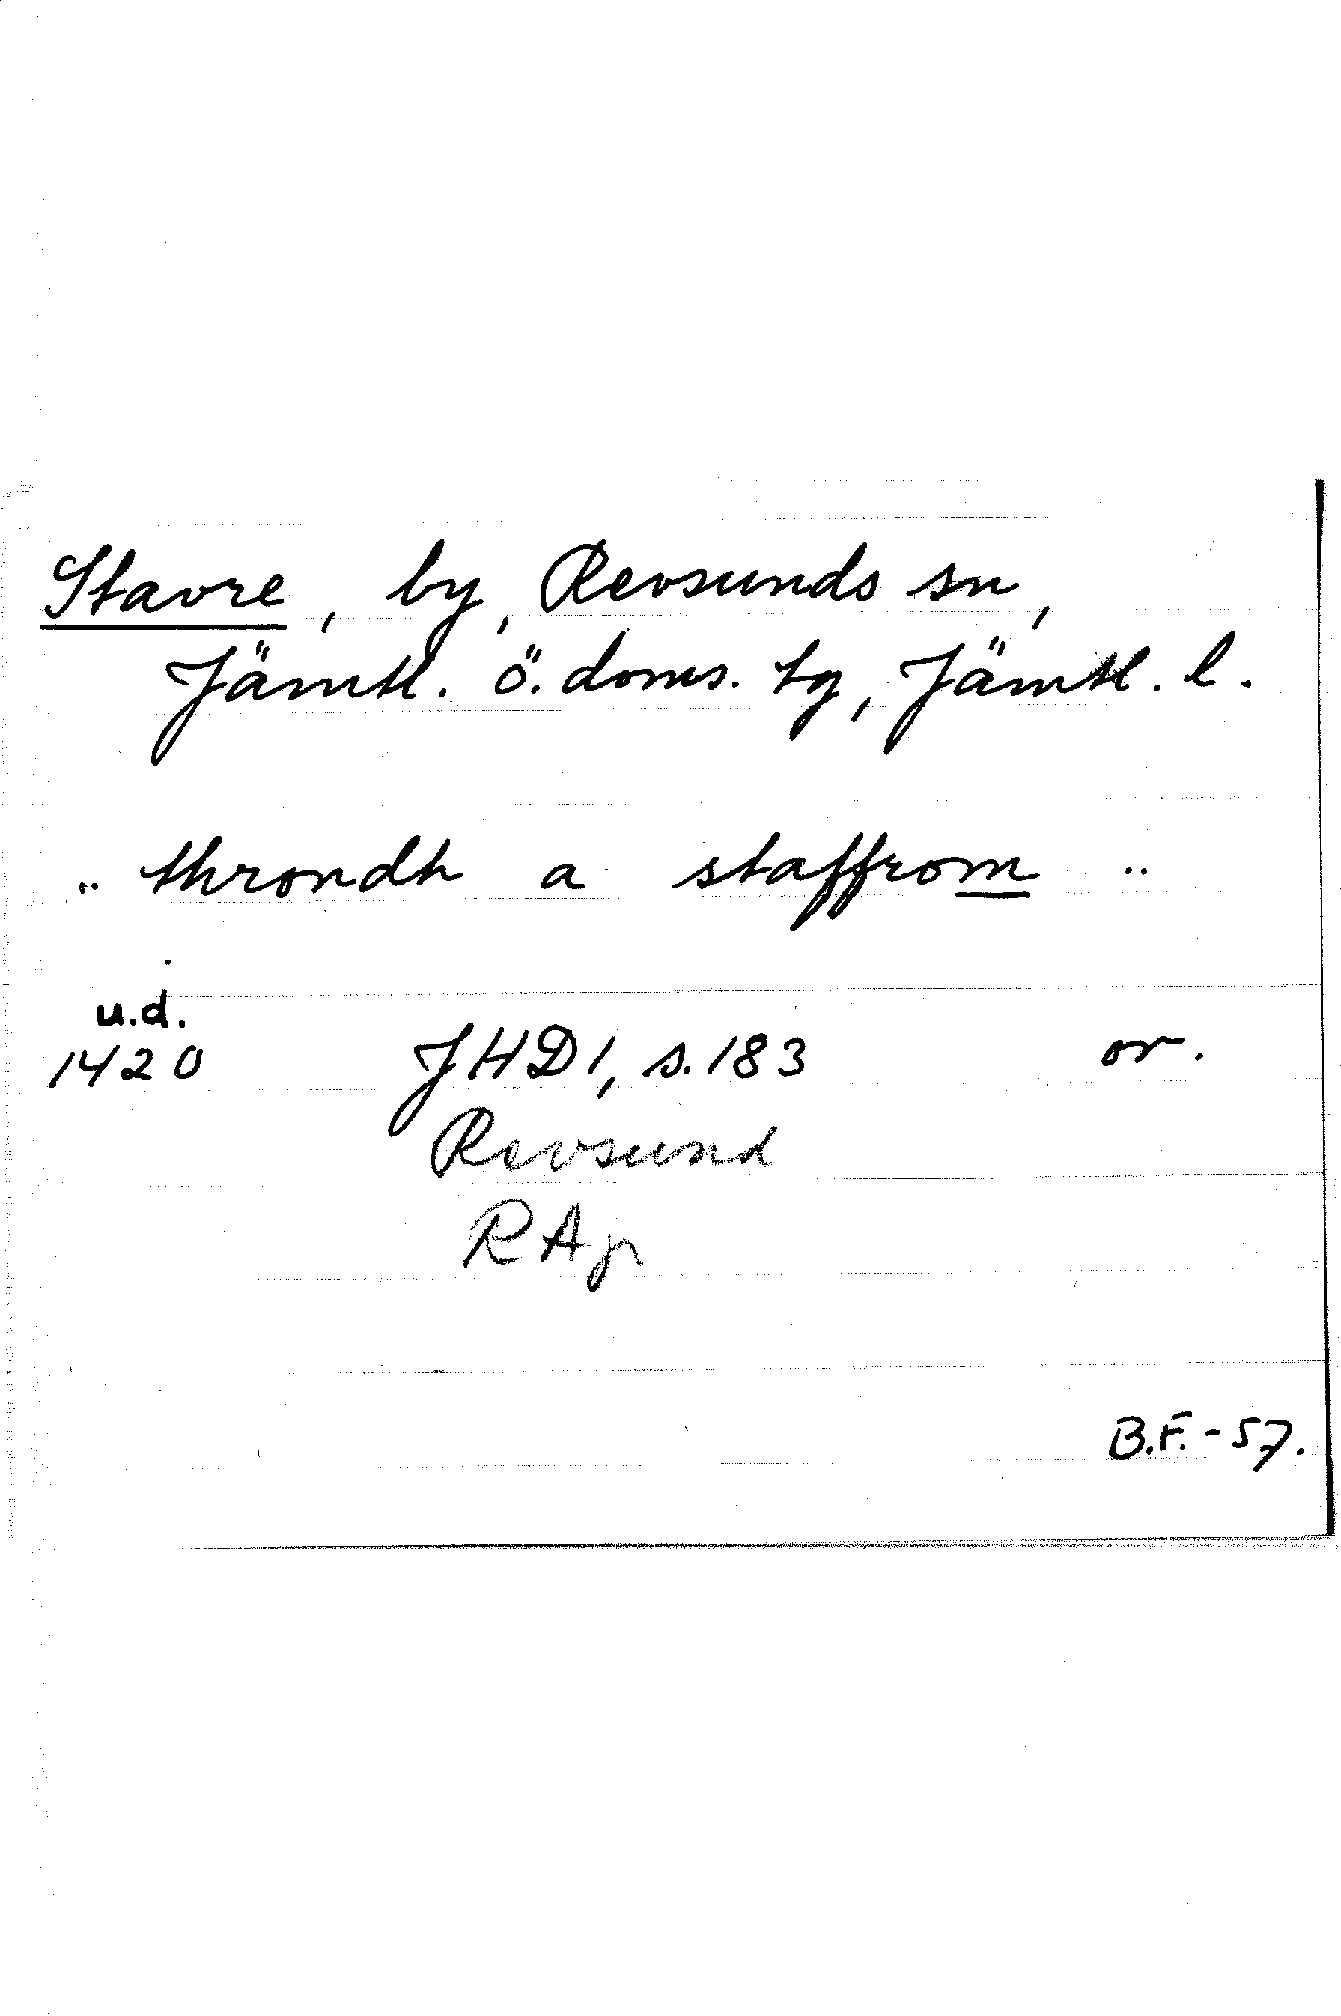 Stavre, by, Revsunds sn,
Jämtl. ö. doms. tg, Jämtl. l.
.. throndh a staffrom ..
u.d.
1420 JHD 1, s. 183 or.
Revsund
RAp
B.F. - 57.